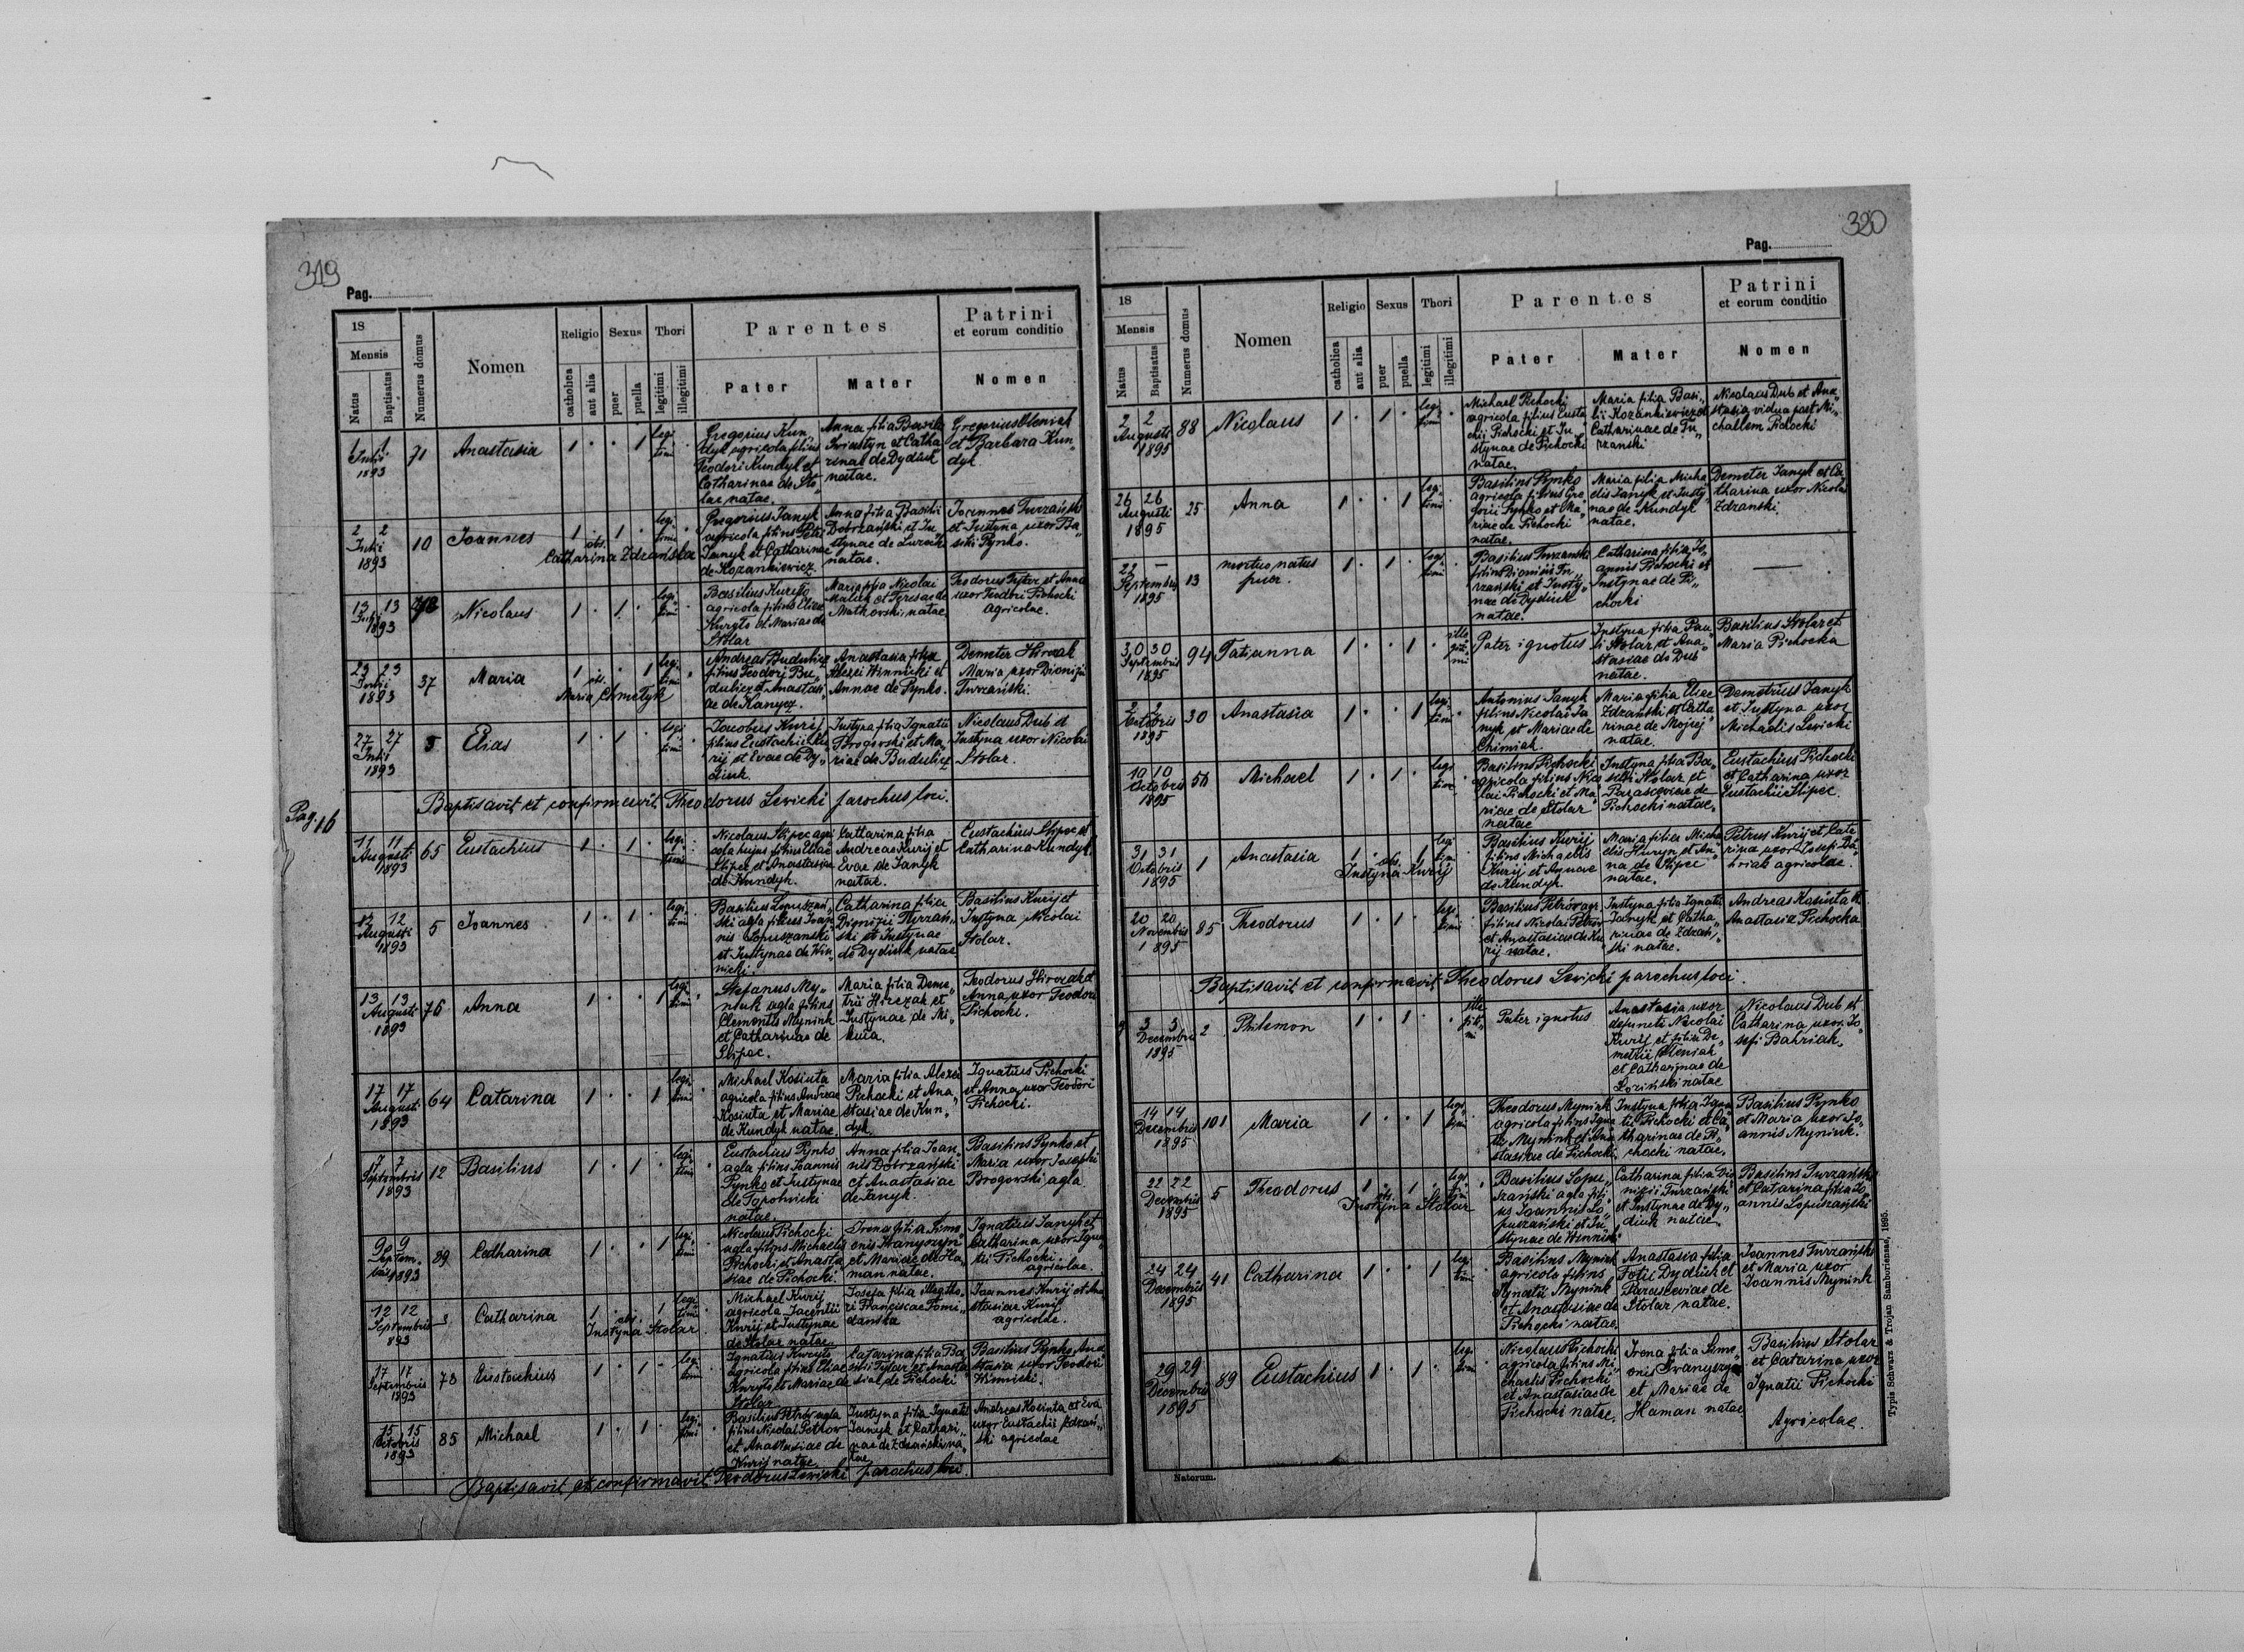 319
Pag.
18
Mensis
Natus
Baptisatus
Numerus domus
Nomen
Religio
catholica
aut alia
Sexus
puer
puella
Thori
legitimi
illegitimi
Parentes
Pater
Mater
Patrini
et eorum conditio
Nomen
1 1
Julii
1893
71
Anastasia
1 . . 1
legi
timi
Gregorius Kun
dyk agricola filius
Teodori Kundyk et
Catharinae de Sto„
lar natae.
Anna filia Basilii
et Catha„
rinae de Dydiuk
natae.
Gregorius Oleniak
et Barbara Kun„
dyk.
2 2
Julii
1893
10
Joannes
1 . 1 .
legi
timi
obs.
Catharina Zdzańska
Gregorius Janyk
agricola filius Petri
Janyk et Catharinae
de Kozankiewicz.
Anna filia Basilii
Dobrzański et Ju„
stynae de
natae.
Joannes Turzański
et Justyna uxor Ba„
silii Pynko.
13 13
Julii
1893
Nicolaus
1 . 1 .
legi
timi
Basilius Kuryto
agricola filius Eliae
Kuryto et Mariae de
Stolar
Maria filia Nicolai
et Teresae de
Matkovski natae
Teodorus Tylar et Anna
uxor Teodori Pichocki
agricolae.
23 23
Julii
1893
37
Maria
1 . . 1
legi
timi
obs.
Maria Chmelyk
Andreas Budulicz
filius Teodori Bu„
dulicz et Anastasi„
ae de Kanycz.
Anastasia filia
Alexei Winnicki et
Annae de Pynko.
Demeter Hirczak
Maria uxor Dionizii
Turzański.
27 27
Julii
1893
5
Elias
1 . 1 .
legi
timi
Jacobus Kurij
filius Eustachii Ku„
rij et Evae de Dy„
diuk.
Justyna filia Ignatii
Brogowski et Ma„
riae de Budulicz
Nicolaus Dub et
Justyna uxor Nicolai
Stolar.
Baptisavit et confirmavit Theodorus Lewicki parochus loci.
Pag 16
11 11
Augusti
1893
65
Eustachius
1 . 1 .
legi
timi
Nicolaus Slipec agri
cola hujus filius Eliae
Slipec et Anastasiae
de Kundyk.
Catharina filia
Andreae Kurij et
Evae de Janyk
natae.
Eustachius Slipec et
Catharina Kundyk
12 12
Augusti
1893
5
Joannes
1 . 1 .
legi
timi
Basilius Lopuszań„
ski agla filius Joan„
nis Lopuszański
et Justynae de Win„
nicki.
Catharina filia
Dionizii Turzań„
ski et Justynae
de Dydiuk natae
Basilius Kurij et
Justyna Nicolai
Stolar.
13 13
Augusti
1893
76
Anna
1 . . 1
legi
timi
Stefanus My„
niuk agla filius
Clementis Myniuk
et Catharinae de
Slipec.
Maria filia Deme„
trii Hirczak et
Justynae de Mi„
kuła.
Teodorus Hirczak et
Anna uxor Teodori
Pichocki.
17 17
Augusti
1893
64
Catarina
1 . . 1
legi
timi
Michael Kosiuta
agricola filius Andreae
Kosiuta et Mariae
de Kundyk natae.
Maria filia Alexei
Pichocki et Ana„
stasiae de Kun„
dyk.
Ignatius Pichocki
et Anna uxor Teodori
Pichocki.
7 7
Septembris
1893
12
Basilius
1 . 1 .
legi
timi
Eustachius Pynko
agla filius Joannis
Pynko et Justynae
de
natae.
Anna filia Joan„
nis Dobrzański
et Anastasiae
de Janyk.
Basilius Pynko et
Maria uxor Josephi
Brogowski agla
9 9
Septem„
bris 1893
89
Catharina
1 . . 1
legi
timi
Nicolaus Pichocki
agla filius Michaelis
Pichocki et Anasta
siae de Pichocki
Irena filia Sime„
onis Iwanyszyn
et Mariae de Ha„
man natae.
Ignatius Janyk et
Catharina uxor Igna„
tii Pichocki.
agricolae.
12 12
Septembris
893
3
Catharina
1 . . 1
legi
timi
obs.
Justyna Stolar
Michael Kurij
agricola Jacentii
Kurij et Justynae
de Stolar natae
Josefa filia
Franciscae Tomi„
danska
Joannes Kurij et Ana„
stasiae Kurij
agricolae.
17 17
Septembris
1893
73
Eustachius
1 . 1 .
legi
timi
Ignatius Kuryto
agricola filius Eliae
Kuryto et Mariae de
Stolar
Catarina filia Ba„
silii Tylar et Anasta„
siae de Pichocki
Basilius Pynko Ana„
stasia uxor Teodori
Winnicki.
15 15
Octobris
1893
85
Michael
1 . 1 .
legi
timi
Basilius Petrów agla
filius Nicolai Petrow
et Anastasiae de
Kurij natae
Justyna filia Ignatii
Janyk et Cathari„
nae de Zdzański na„
tae
Andreas Kosiuta et Eva
uxor Eustachii Zdzań„
ski agricolae
Baptisavit et confirmavit Teodorus Lewicki parochus loci
320
Pag.
18
Mensis
Natus
Baptisatus
Numerus domus
Nomen
Religio
catholica
aut alia
Sexus
puer
puella
Thori
legitimi
illegitimi
Parentes
Pater
Mater
Patrini
et eorum conditio
Nomen
2 2
Augusti
1895
88
Nicolaus
1 . 1 .
legi
timi
Michael Pichocki
agricola filius Eusta
chii Pichocki et Ju„
stynae de Pichocki
natae.
Maria filia Basi„
lii Kozankiewicz et
Catharinae de Tu„
rzanski
Nicolaus Dub et Ana„
stasia vidua post Mi„
chaelem Pichocki
26 26
Augusti
1895
25
Anna
1 . . 1
legi
timi
Basilius Pynko
agricola filius Gre„
gorii Pynko et Ma„
riae de Pichocki
natae.
Maria filia Micha
elis Janyk et Justy„
nae de Kundyk
natae.
Demeter Janyk et Ca„
tharina uxor Nicolai
Zdzanski.
22 —
Septembris
1895
13
mortuo natus
puer.
1 . 1 .
legi
timi
Basilius Turzanski
filius Dionisii Tu„
rzański et Justy„
nae de Dydiuk
natae.
Catharina filia Jo„
annis Pichocki et
Justynae de Pi„
chocki
—
30 30
Septembris
1895
94
Tatianna
1 . . 1 .
ille
giti
mi
Pater ignotus
Justyna filia Pau„
li Stolar et Ana„
stasiae de Dub
natae.
Basilius Stolar et
Maria Pichocka
2 2
Octobris
1895
30
Anastasia
1 . . 1
legi
timi
Antonius Janyk
filius Nicolai Ja„
nyk et Mariae de
Chimiak.
Maria filia Eliae
Zdzański et Catha„
rinae de Mojsej
natae.
Demetrius Janyk
et Justyna uxor
Michaelis Lewicki
10 10
Octobris
1895
56
Michael
1 . 1 .
legi
timi
Basilius Pichocki
agricola filius Nico„
lai Pichocki et Ma„
riae de Stolar
natae
Justyna filia Ba„
silii Stolar et
Parasceviae de
Pichocki natae.
Eustachius Pichocki
et Catharina uxor
Eustachii Slipec.
31 31
Octobris
1895
1
Anastasia
1 . . 1
legi
timi
obs.
Justyna Kurij
Basilius Kurij
filius Michaelis
Kurij et Annae
de Kundyk.
Maria filia Micha„
elis Huryn et An„
na de Slipec
natae.
Petrus Kurij et Cate„
rina uxor Josefi Ba„
hriak agricolae.
20 20
Novembris
1895
85
Theodorus
1 . 1 .
legi
timi
Basilius Petrów agr.
filius Nicolai Petrów
et Anastasiae de Ku„
rij natae.
Justyna filia Ignatii
Janyk et Catha„
rinae de Zdzań„
ski natae.
Andreas Kosiuta et
Anastasia Pichocka
Baptisavit et confirmavit Theodorus Lewicki parochus loci.
3 3
Decembris
1895
2
Philemon
1 . 1 . .
ille
giti„
mi
Pater ignotus
Anastasia uxor
defuncti Nicolai
Kurij et filia De„
metrii Oleniak
et Catharinae de
Loziński natae
Nicolaus Dub et
Catharina uxor Jo„
sefi Bahriak.
14 14
Decembris
1895
101
Maria
1 . . 1
legi
timi
Theodorus Myniuk
agricola filius Igna
tii Myniuk et Ana
stasiae de Pichocki
Justyna filia Igna
tii Pichocki et Ca„
tharinae de Pi„
chocki natae.
Basilius Pynko
et Maria uxor Jo„
annis Myniuk.
22 22
Decembris
1895
5
Theodorus
1 . 1 .
legi
timi
obs.
Justyna Stolar
Basilius Lopu„
szański agla fili„
us Joannis Lo„
puszański et Ju„
stynae de Winnicki
Catharina filia Dio
nizii Turzański
et Justynae de Dy„
diuk natae
Basilius Turzański
et Catarina filia Jo
annis Lopuszański
24 24
Decembris
1895
41
Catharina
1 . . 1
legi
timi
Basilius Myniuk
agricola filius
Ignatii Myniuk
et Anastasiae de
Pichocki natae.
Anastasia filia
Fotii Dydiuk et
Parasceviae de
Stolar natae.
Joannes Turzański
et Maria uxor
Joannis Myniuk
29 29
Decembris
1895
89
Eustachius
1 . 1 .
legi
timi
Nicolaus Pichocki
agricola filius Mi„
chaelis Pichocki
et Anastasiae de
Pichocki natae.
Irena filia Sime„
onis Iwanyszyn
et Mariae de
Haman natae
Basilius Stolar
et Catarina uxor
Ignatii Pichocki
Agricolae.
Natorum.
Typis Schwarz & Trojan Samboriensae, 1895.